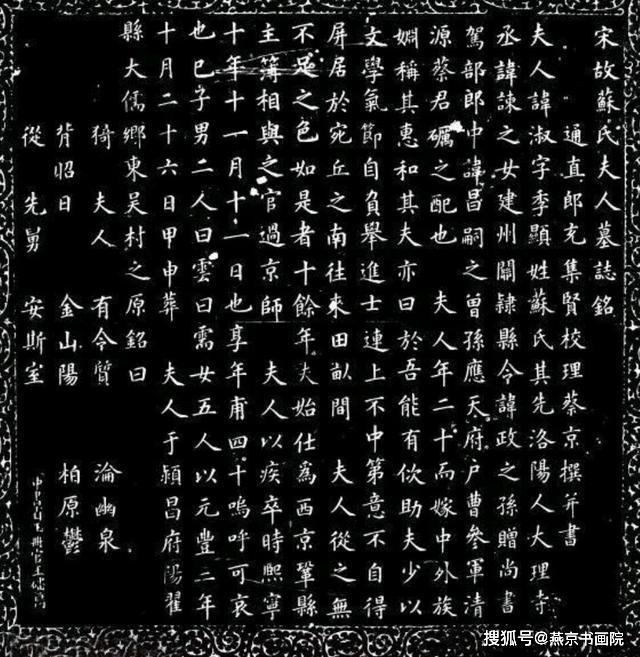 宋故蘇氏夫人墓誌銘
通直郎充集賢校理蔡京撰并書
夫人諱淑字季顯姓蘇氏其先洛陽人大理寺
丞諱諫之女建州關隸縣令諱政之孫贈尚書
駕部郎中諱昌嗣之曾孫應天府戶曹參軍清
源蔡君礪之配也 夫人年二十而嫁中外族
姻稱其惠和其夫亦曰於吾能有佽助夫少以
文學氣節自負舉進士連上不中第意不自得
屏居於宛丘之南往來田畝間 夫人從之無
不足之色如是者十餘年夫始仕爲西京鞏縣
主簿相與之官過京師 夫人以疾卒時熙寧
十年十一月十一日也享年甫四十嗚呼可哀
也已子男二人曰雲曰女五人以元豐二年
十月二十六日甲申葬 夫人于潁昌府陽翟
縣大儒鄉東吳村之原銘曰
猗夫人 有令質 淪幽泉
背昭日 金山陽 柏原鬱
從先舅 安斯室
搜狐号@燕京书画院